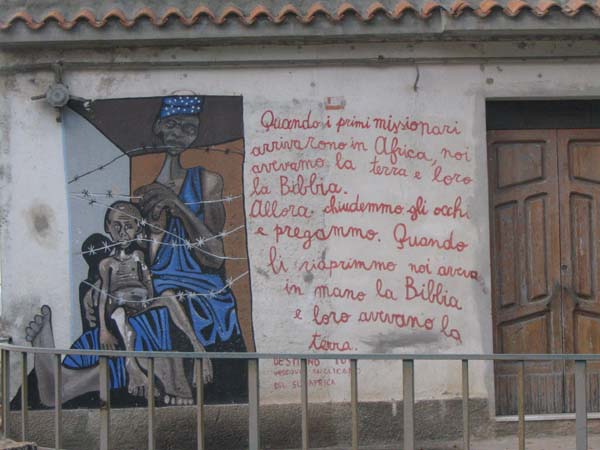 Quando i primi missionari
arrivarono in Africa, noi
avevamo la terra e loro
la Bibbia.
Allora chiudemmo gli occhi
e pregammo. Quando
li riaprimmo noi avev
in mano la Bibbia
e loro avevano la
terra.
VESCOVO ANGLICANO
DEL SUDAFRICA